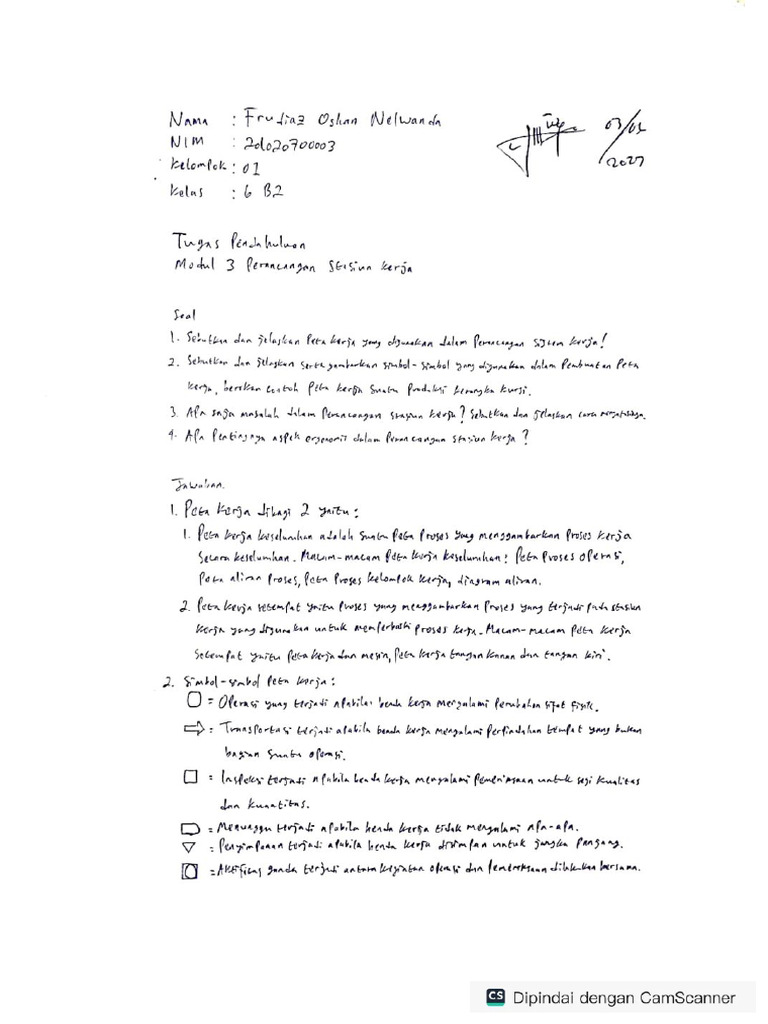 Nama : Frudiaz Oshan Nelwanda
NIM : 201020700003
Kelompok : 01
Kelas : 6 B2
03/05
/2023
Tugas Pendahuluan
Modul 3 Perancangan Stasiun Kerja
Soal
1. Sebutkan dan jelaskan Peta kerja yang digunakan dalam Perancangan sistem kerja!
2. Sebutkan dan jelaskan serta gambarkan simbol-simbol yang digunakan dalam Pembuatan Peta
kerja, berikan contoh Peta kerja suatu Produksi kerangka kursi.
3. Apa saja masalah dalam Perancangan stasiun kerja? Sebutkan dan jelaskan cara mengatasinya.
4. Apa Pentingnya aspek ergonomis dalam Perancangan stasiun kerja?
Jawaban.
1. Peta Kerja dibagi 2 yaitu :
1. Peta kerja keseluruhan adalah suatu Peta Proses yang menggambarkan Proses kerja
secara keseluruhan. Macam-macam Peta kerja keseluruhan : Peta Proses Operasi,
Peta aliran Proses, Peta Proses kelompok kerja, diagram aliran.
2. Peta kerja setempat yaitu Proses yang menggambarkan Proses yang terjadi Pada stasiun
kerja yang digunakan untuk memperbaiki Proses kerja. Macam-macam Peta kerja
setempat yaitu Peta kerja dan mesin, Peta kerja tangan kanan dan tangan kiri.
2. Simbol-simbol Peta kerja :
= Operasi yang terjadi apabila benda kerja mengalami Perubahan sifat fisik.
= Transportasi terjadi apabila benda kerja mengalami Perpindahan tempat yang bukan
bagian suatu operasi.
= Inspeksi terjadi apabila benda kerja mengalami Pemeriksaan untuk segi kualitas
dan kuantitas.
= Menunggu terjadi apabila benda kerja tidak mengalami apa-apa.
= Penyimpanan terjadi apabila benda kerja disimpan untuk jangka Panjang.
= Aktifitas ganda terjadi antara kegiatan operasi dan Pemeriksaan dilakukan bersama.
CS Dipindai dengan CamScanner